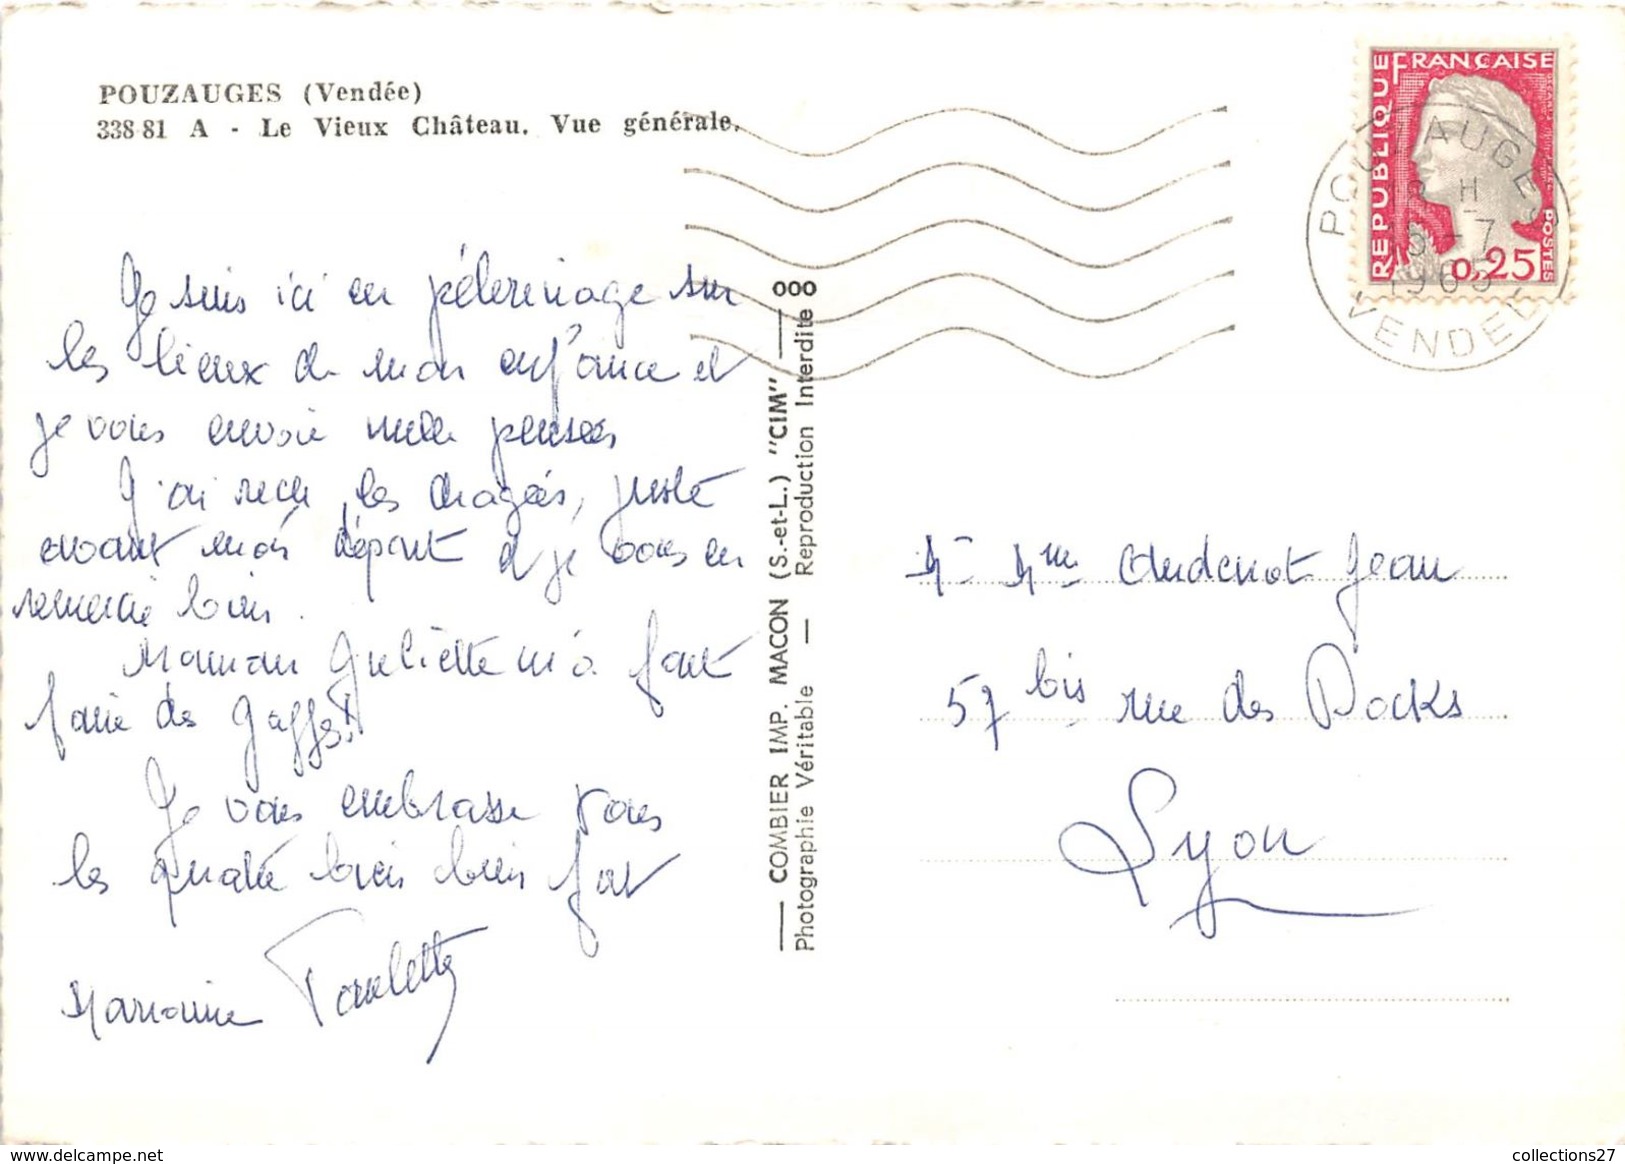 POUZAUGES (Vendée)
338-81 A - Le Vieux Château. Vue générale.
Je suis ici en pélerinage sur
les lieux de mon enfance et
je vous envoie mille pensées
J'ai recu les dragées, juste
avant mon départ et je vous en
remercie bien.
Maman Juliette m'a fait
faire des gaffes!
Je vous embrasse tous
les quatre bien bien fort
Marraine Paulette
COMBIER IMP. MACON (S.-et-L.) "CIM" ooo
Photographie Véritable — Reproduction Interdite
REPUBLIQUE FRANÇAISE
POSTES
0,25
POUZAUGES
18 H
6-7
1965
VENDEE
Mr Mme Audenot Jean
57 bis rue des Docks
Lyon
www.delcampe.net
collections27